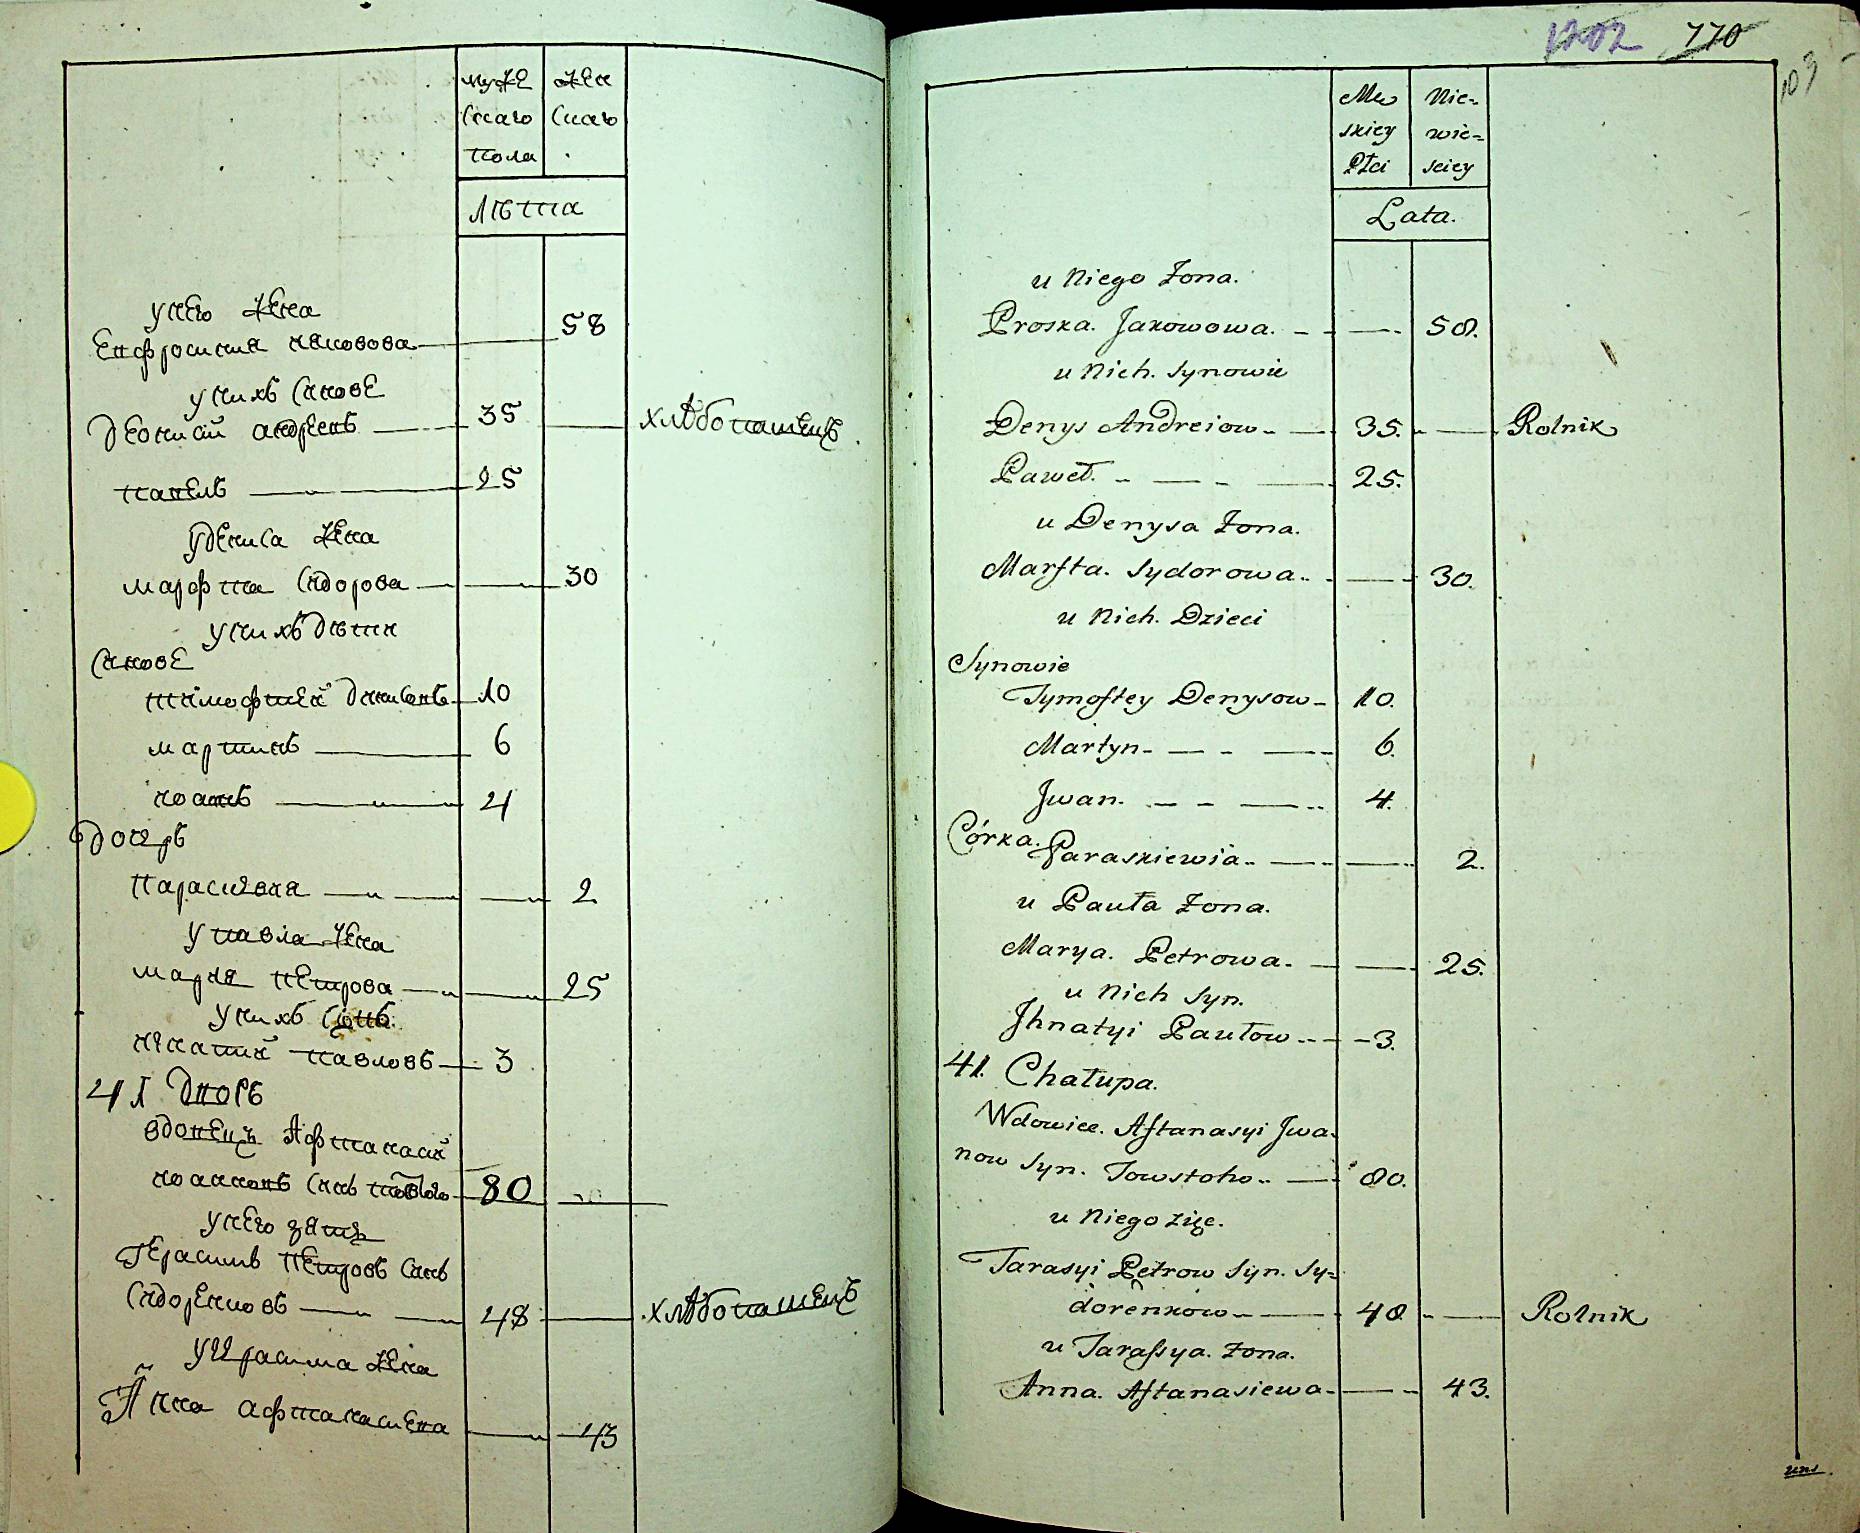 муже
скаго
пола
жен
скаго
Лѣта
унего жена
Евфросиния иаковова 58
унихъ синове
Деонисий андреевъ 35 хлѣбопашецъ
павелъ 25
уДениса жена
марфта Сидорова 30
унихъ дѣти
синове
тимофтей Динисовъ 10
мартинъ 6
иоанъ 4
дочерь
параскевия 2
у павла жена
мария петрова 25
унихъ синъ
игнатий павловъ 3
41 Дворъ
вдовецъ Афтанасий
иоанновъ синъ товстого 80
унего зять
Герасимъ петровъ синъ
сидоренковъ 48 хлѣбопашецъ
уГерасима жена
Анна афтанасиева 43
1202 770
109
Mę
skiey
Płci
Nie-
wie-
sciey
Lata.
u Niego Żona.
Proska. Jakowowa. 58.
u Nich. Synowie
Denys Andreiow 35. Rolnik
Paweł. 25.
u Denysa Żona.
Marfta. Sydorowa 30.
u Nich. Dzieci
Synowie
Tymoftey Denysow 10.
Martyn 6.
Jwan. 4.
Córka. Paraskiewia 2.
u Pauła Żona.
Marya. Petrowa 25.
u Nich Syn.
Jhnatyi Paułow 3.
41. Chałupa.
Wdowiec. Aftanasyi Jwa-
now Syn. Towstoho 80.
u Niego zięc.
Tarasyi Petrow Syn. Sy-
dorenkow 48 Rolnik
u Tarassya. Żona.
Anna. Aftanasiewa 43.